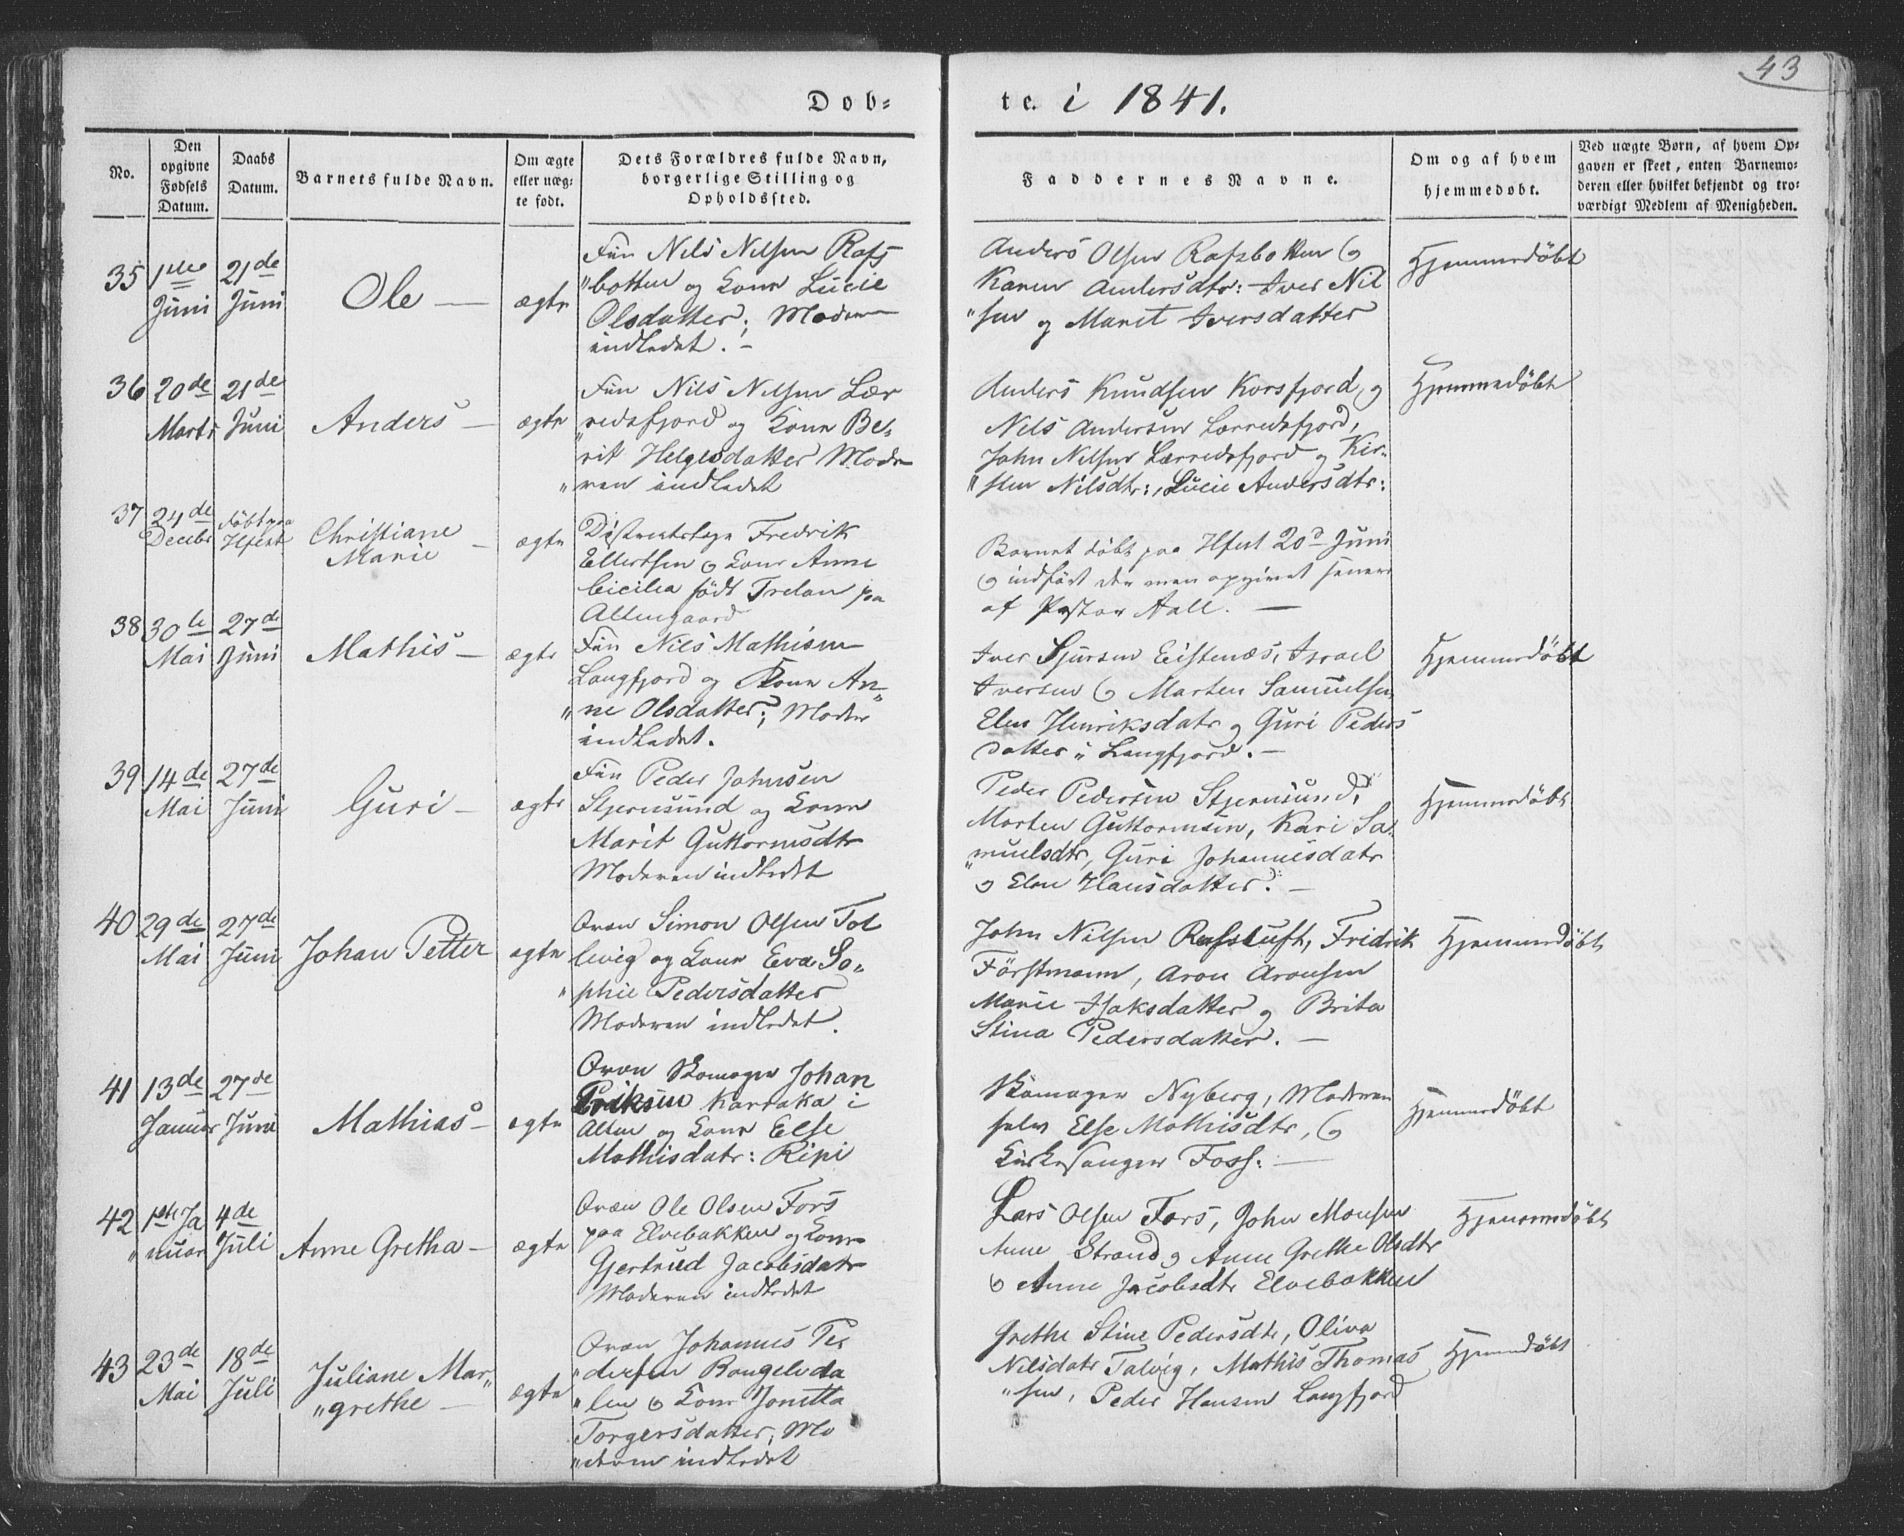 43
Døb=
te. i 1841.
No.
Den opgivne Fødsels Datum.
Daabs Datum.
Barnets fulde Navn.
Om ægte eller uæg- te født.
Dets Forældres fulde Navn, borgerlige Stilling og Opholdssted.
Faddernes Navne.
Om og af hvem hjemmedøbt.
Ved uægte Børn, af hvem Op-
gaven er skeet, enten Barnemo-
deren eller hvilket bekjendt og tro-
værdigt Medlem af Menigheden.
35 1ste Juni 21de Juni Ole — ægte
Fin Nils Nilsen Rafs
"botten og Kone Lucie
Olsdatter; Moderen
indledet. —
Anders Olsen Rafsbotten og
Karen Andersdtr: Iver Nil
"sen og Marit Iversdatter
Hjemmedøbt
36 20de Marts 21de Juni Anders — ægte
Fin Nils Nilsen Lær
"redsfjord og Kone Be-
rit Helgesdatter Mode
"ren indledet
Anders Knudsen Korsfjord og
Nils Andersen Lerredsfjord,
John Nilsen Lærredsfjord og Kir-
"sten Nilsdtr:, Lucie Andersdtr:
Hjemmedøbt
37 24de Decebr døbt paa Christiane Marie — ægte
Fredrik
Ellertsen og Kone Anne
Cicilia født Trelan paa
Altengaard
Barnet døbt paa 20de Juni
og indført der men opgivet senere
af Pastor Aall. —
38 30te Mai 27de Juni Mathis — ægte
Fin Nils Mathisen
Langfjord og Kone An-
"ne Olsdatter; Moder
indledet.
Iver Sjursen Eistenæs, Israel
Iversen og Marten Samuelsen,
Elen Henriksdatr og Guri Peders
datter i Langfjord. —
Hjemmedøbt
39 14de Mai 27de Juni Guri — ægte
Fin Peder Johnsen
Stjernsund og Kone
Marit Guttormsdtr
Moderen indledet
Peder Pedersen Stjernsund,
Morten Guttormsen, Kari Sa-
"muelsdtr, Guri Johannesdatr
og Elen Hansdatter. —
Hjemmedøbt
40 29de Mai 27de Juni Johan Petter ægte
Qvæn Simon Olsen Tol
levig og Kone Eva So-
"phie Pedersdatter
Moderen indledet.
John Nilsen Rafsluft, Fridrik
Förstmann, Aron Aronsen
Marie Isaksdatter og Brita
Stina Pedersdatter. —
Hjemmedøbt
41 13de Januar 27de Juni Mathias — ægte
Qvæn Skomager Johan
Eriksen Karraka i
Alten og Kone Else
Mathisdatr: Ripi
Skomager Nyberg, Moderen
selv Else Mathisdtr, og
Kirkesanger Foss: —
Hjemmedøbt
42 1ste Ja "nuar 4de Juli Anne Gretha — ægte
Qvæn Ole Olsen Fors
paa Elvebakken og Kone
Gjertrud Jacobsdatr
Moderen indledet
Lars Olsen Fors, John Monsen
Anne Strand og Anne Grethe Olsdtr
og Anne Jacobsdtr Elvebakken
Hjemmedøbt
43 23de Mai 18de Juli Juliane Mar- "grethe — ægte
Qvæn Johannes Pe
"dersen Bongelvda
"len og Kone Jonetta
Torgersdatter, Mo
"deren indledet
Grethe Stine Pedersdtr, Oliva
Nilsdatr Talvig, Mathis Thomas
"sen, Peder Hansen Langfjord
Hjemmedøbt